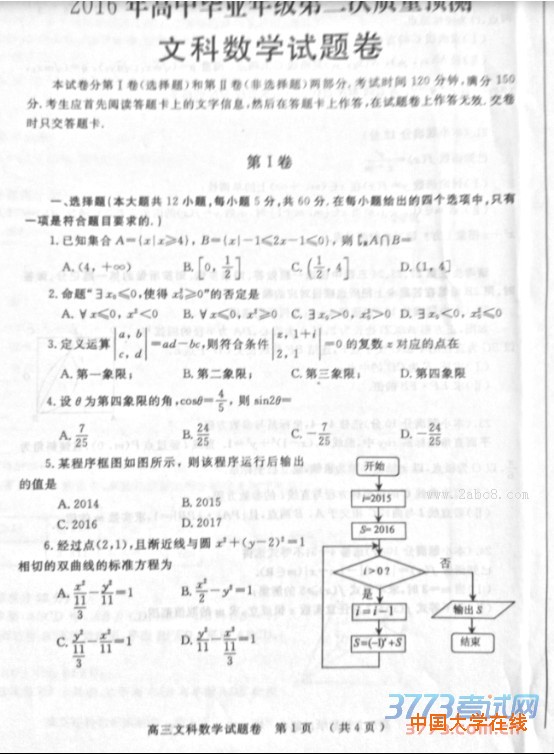 2016年高中毕业年级第二次质量预测
文科数学试题卷
本试卷分第Ⅰ卷(选择题)和第Ⅱ卷(非选择题)两部分.考试时间120分钟,满分150
分.考生应首先阅读答题卡上的文字信息,然后在答题卡上作答,在试题卷上作答无效.交卷
时只交答题卡.
第Ⅰ卷
一、选择题(本大题共12小题,每小题5分,共60分.在每小题给出的四个选项中,只有
一项是符合题目要求的.)
1.已知集合A={x|x≥4}, B={x|-1≤2x-1≤0},则∁RA∩B=
A.(4,+∞) B.[0,1/2] C.(1/2,4] D.(1,4]
2.命题“∃x₀≤0,使得x₀²≥0”的否定是
A.∀x≤0,x²<0 B.∀x≤0,x²≥0 C.∃x₀>0,x₀²>0 D.∃x₀<0,x₀²≤0
3.定义运算|a,b c,d|=ad-bc,则符合条件|z,1+i 2,1|=0的复数z对应的点在
A.第一象限; B.第二象限; C.第三象限; D.第四象限
4.设θ为第四象限的角,cosθ=4/5,则sin2θ=
A.7/25 B.24/25 C.-7/25 D.-24/25
5.某程序框图如图所示,则该程序运行后输出
的值是
A.2014 B.2015
C.2016 D.2017
6.经过点(2,1),且渐近线与圆x²+(y-2)²=1
相切的双曲线的标准方程为
A.x²/(11/3)-y²/11=1 B.x²/2-y²=1
C.y²/(11/3)-x²/11=1 D.y²/11-x²/(11/3)=1
开始
i=2015
S=2016
i>0?
是
否
i=i-1
输出S
S=(-1)ⁱ+S
结束
www.2abc8.com
高三文科数学试题卷 第1页 (共4页)
3773考试网
中国大学在线